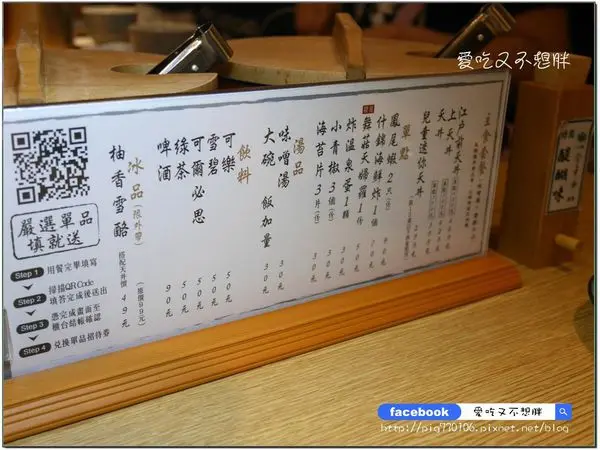 愛吃又不想胖
主食套餐
江戶前天丼
上天丼
天丼
兒童迷你天丼
單點
鳳尾蝦2只(份)
什錦海鮮炸1個
舞菇天婦羅1份
炸溫泉蛋1顆
小青椒3個(份) 30元
海苔片3片(份) 30元
湯品
味噌湯 30元
大碗 飯加量 30元
飲料
可樂 50元
雪碧 50元
可爾必思 50元
綠茶 50元
啤酒 90元
冰品(限外帶)
柚香雪酪 搭配天丼價49元
(推價99元)
嚴選單品
填就送
Step 1 用餐完畢填寫
Step 2 掃描QR Code
填答完成後送出
Step 3 憑完成畫面至
櫃台結帳確認
Step 4 兌換單品招待券
醍醐味
facebook 愛吃又不想胖
http://pig770706.pixnet.net/blog